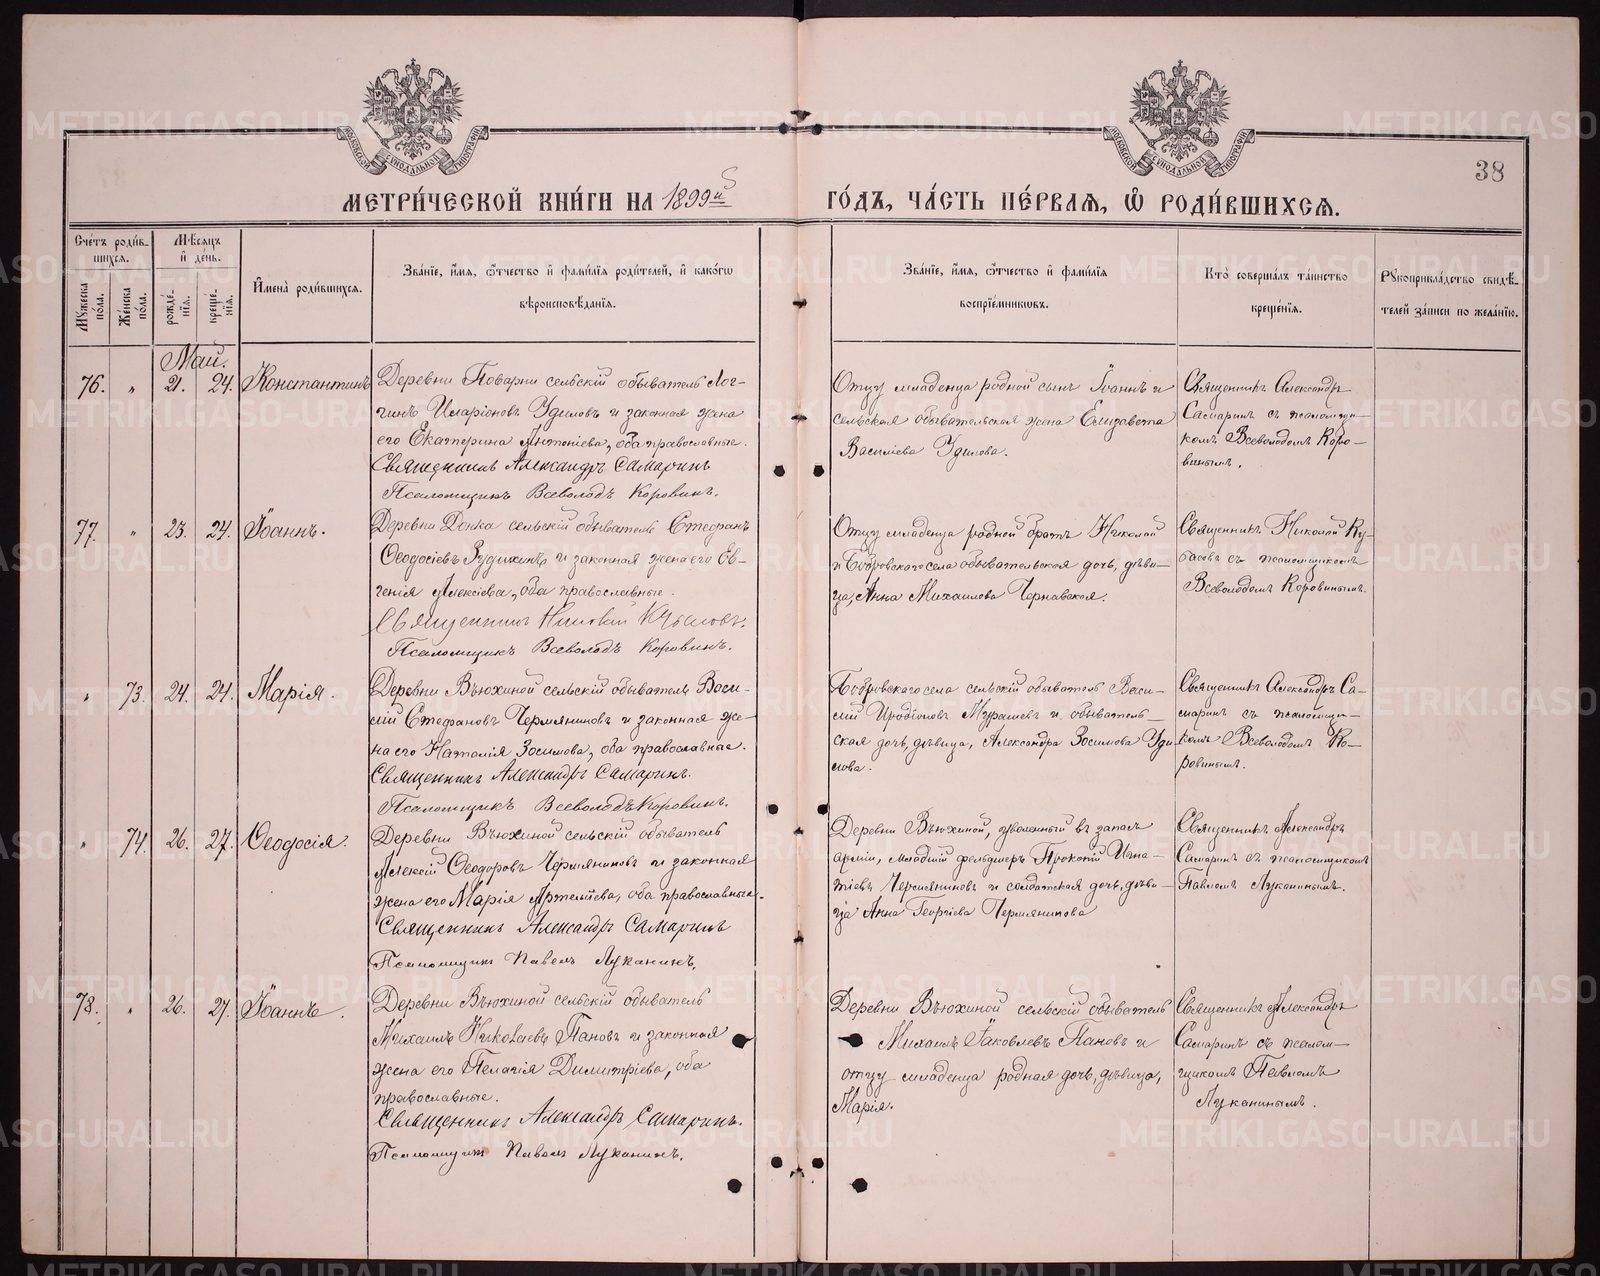 38
МЕТРИ́ЧЕСКОЙ КНИ́ГИ НА 1899й ГО́ДЪ, ЧА́СТЬ ПЕ́РВАѦ, Ѡ҆ РОДИ́ВШИХСѦ.
Сче́тъ роди́вшихсѧ.
Мꙋжеска по́ла.
Же́нска по́ла.
Мѣ́сѧцъ и҆ де́нь.
рожде́нїѧ.
креще́нїѧ.
И҆мена̀ роди́вшихсѧ.
Зва́нїе, и҆́мѧ, ѻ҆́тчество и҆ фами́лїѧ роди́телей, и҆ како́гѡ
вѣроисповѣ́данїѧ.
Зва́нїе, и҆́мѧ, ѻ҆́тчество и҆ фами́лїѧ
воспрїе́мникѡвъ.
Кто̀ соверша́лъ та́инство
креще́нїѧ.
Рꙋкоприкла́дство свидѣ́-
телей за́писи по жела́нїю.
Май.
76. " 21. 24. Константинъ
Деревни Поварни сельскій обыватель Лог-
гинъ Иларіоновъ Удиловъ и законная жена
его Екатерина Антоніева, оба православные.
Священникъ Александръ Самаринъ
Псаломщикъ Всеволодъ Коровинъ.
Отцу младенца родной сынъ Іоаннъ и
сельская обывательская жена Елизавета
Василіева Удилова.
Священникъ Александръ
Самаринъ съ псаломщи-
комъ Всеволодомъ Коро-
винымъ.
77. " 23. 24. Іоаннъ.
Деревни сельскій обыватель Стефанъ
Ѳеодосіевъ и законная жена его Ев-
генія Алексіева, оба православные.
Священникъ Николай
Псаломщикъ Всеволодъ Коровинъ.
Отцу младенца родной братъ Николай
и Бобровскаго села обывательская дочь, дѣви-
ца, Анна Михаилова Чернавская.
Священникъ Николай Ку-
басовъ съ псаломщикомъ
Всеволодомъ Коровинымъ.
" 73. 24. 24. Марія.
Деревни Вьюхиной сельскій обыватель Васи-
лій Стефановъ Чермяниновъ и законная же-
на его Наталія Зосимова, оба православные.
Священникъ Александръ Самаринъ.
Псаломщикъ Всеволодъ Коровинъ.
Бобровскаго села сельскій обыватель Васи-
лій Иродіоновъ Мурашевъ и обыватель-
ская дочь, дѣвица, Александра Зосимова Уди-
лова.
Священникъ Александръ Са-
маринъ съ псаломщи-
комъ Всеволодомъ Ко-
ровинымъ.
" 74. 26. 27. Ѳеодосія.
Деревни Вьюхиной сельскій обыватель
Алексій Ѳеодоровъ Чермяниновъ и законная
жена его Марія Артеміева, оба православные.
Священникъ Александръ Самаринъ
Псаломщикъ Павелъ Луканинъ.
Деревни Вьюхиной, уволенный въ запасъ
арміи, младшій фельдшеръ Прокопій Игна-
тіевъ Чермяниновъ и солдатская дочь, дѣви-
ца Анна Георгіева Чермянинова
Священникъ Александръ
Самаринъ съ псаломщикомъ
Павломъ Луканинымъ.
78. " 26. 27. Іоаннъ.
Деревни Вьюхиной сельскій обыватель
Михаилъ Николаевъ Пановъ и законная
жена его Пелагія Димитріева, оба
православные.
Священникъ Александръ Самаринъ.
Псаломщикъ Павелъ Луканинъ.
Деревни Вьюхиной сельскій обыватель
Михаилъ Іаковлевъ Пановъ и
отцу младенца родная дочь, дѣвица,
Марія.
Священникъ Александръ
Самаринъ съ псалом-
щикомъ Павломъ
Луканинымъ.
METRIKI.GASO-URAL.RU